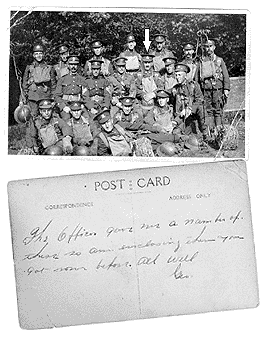 POST CARD
CORRESPONDENCE
ADDRESS ONLY
The Officer gave me a number of
these so am enclosing them you
got some before. All well
Geo.